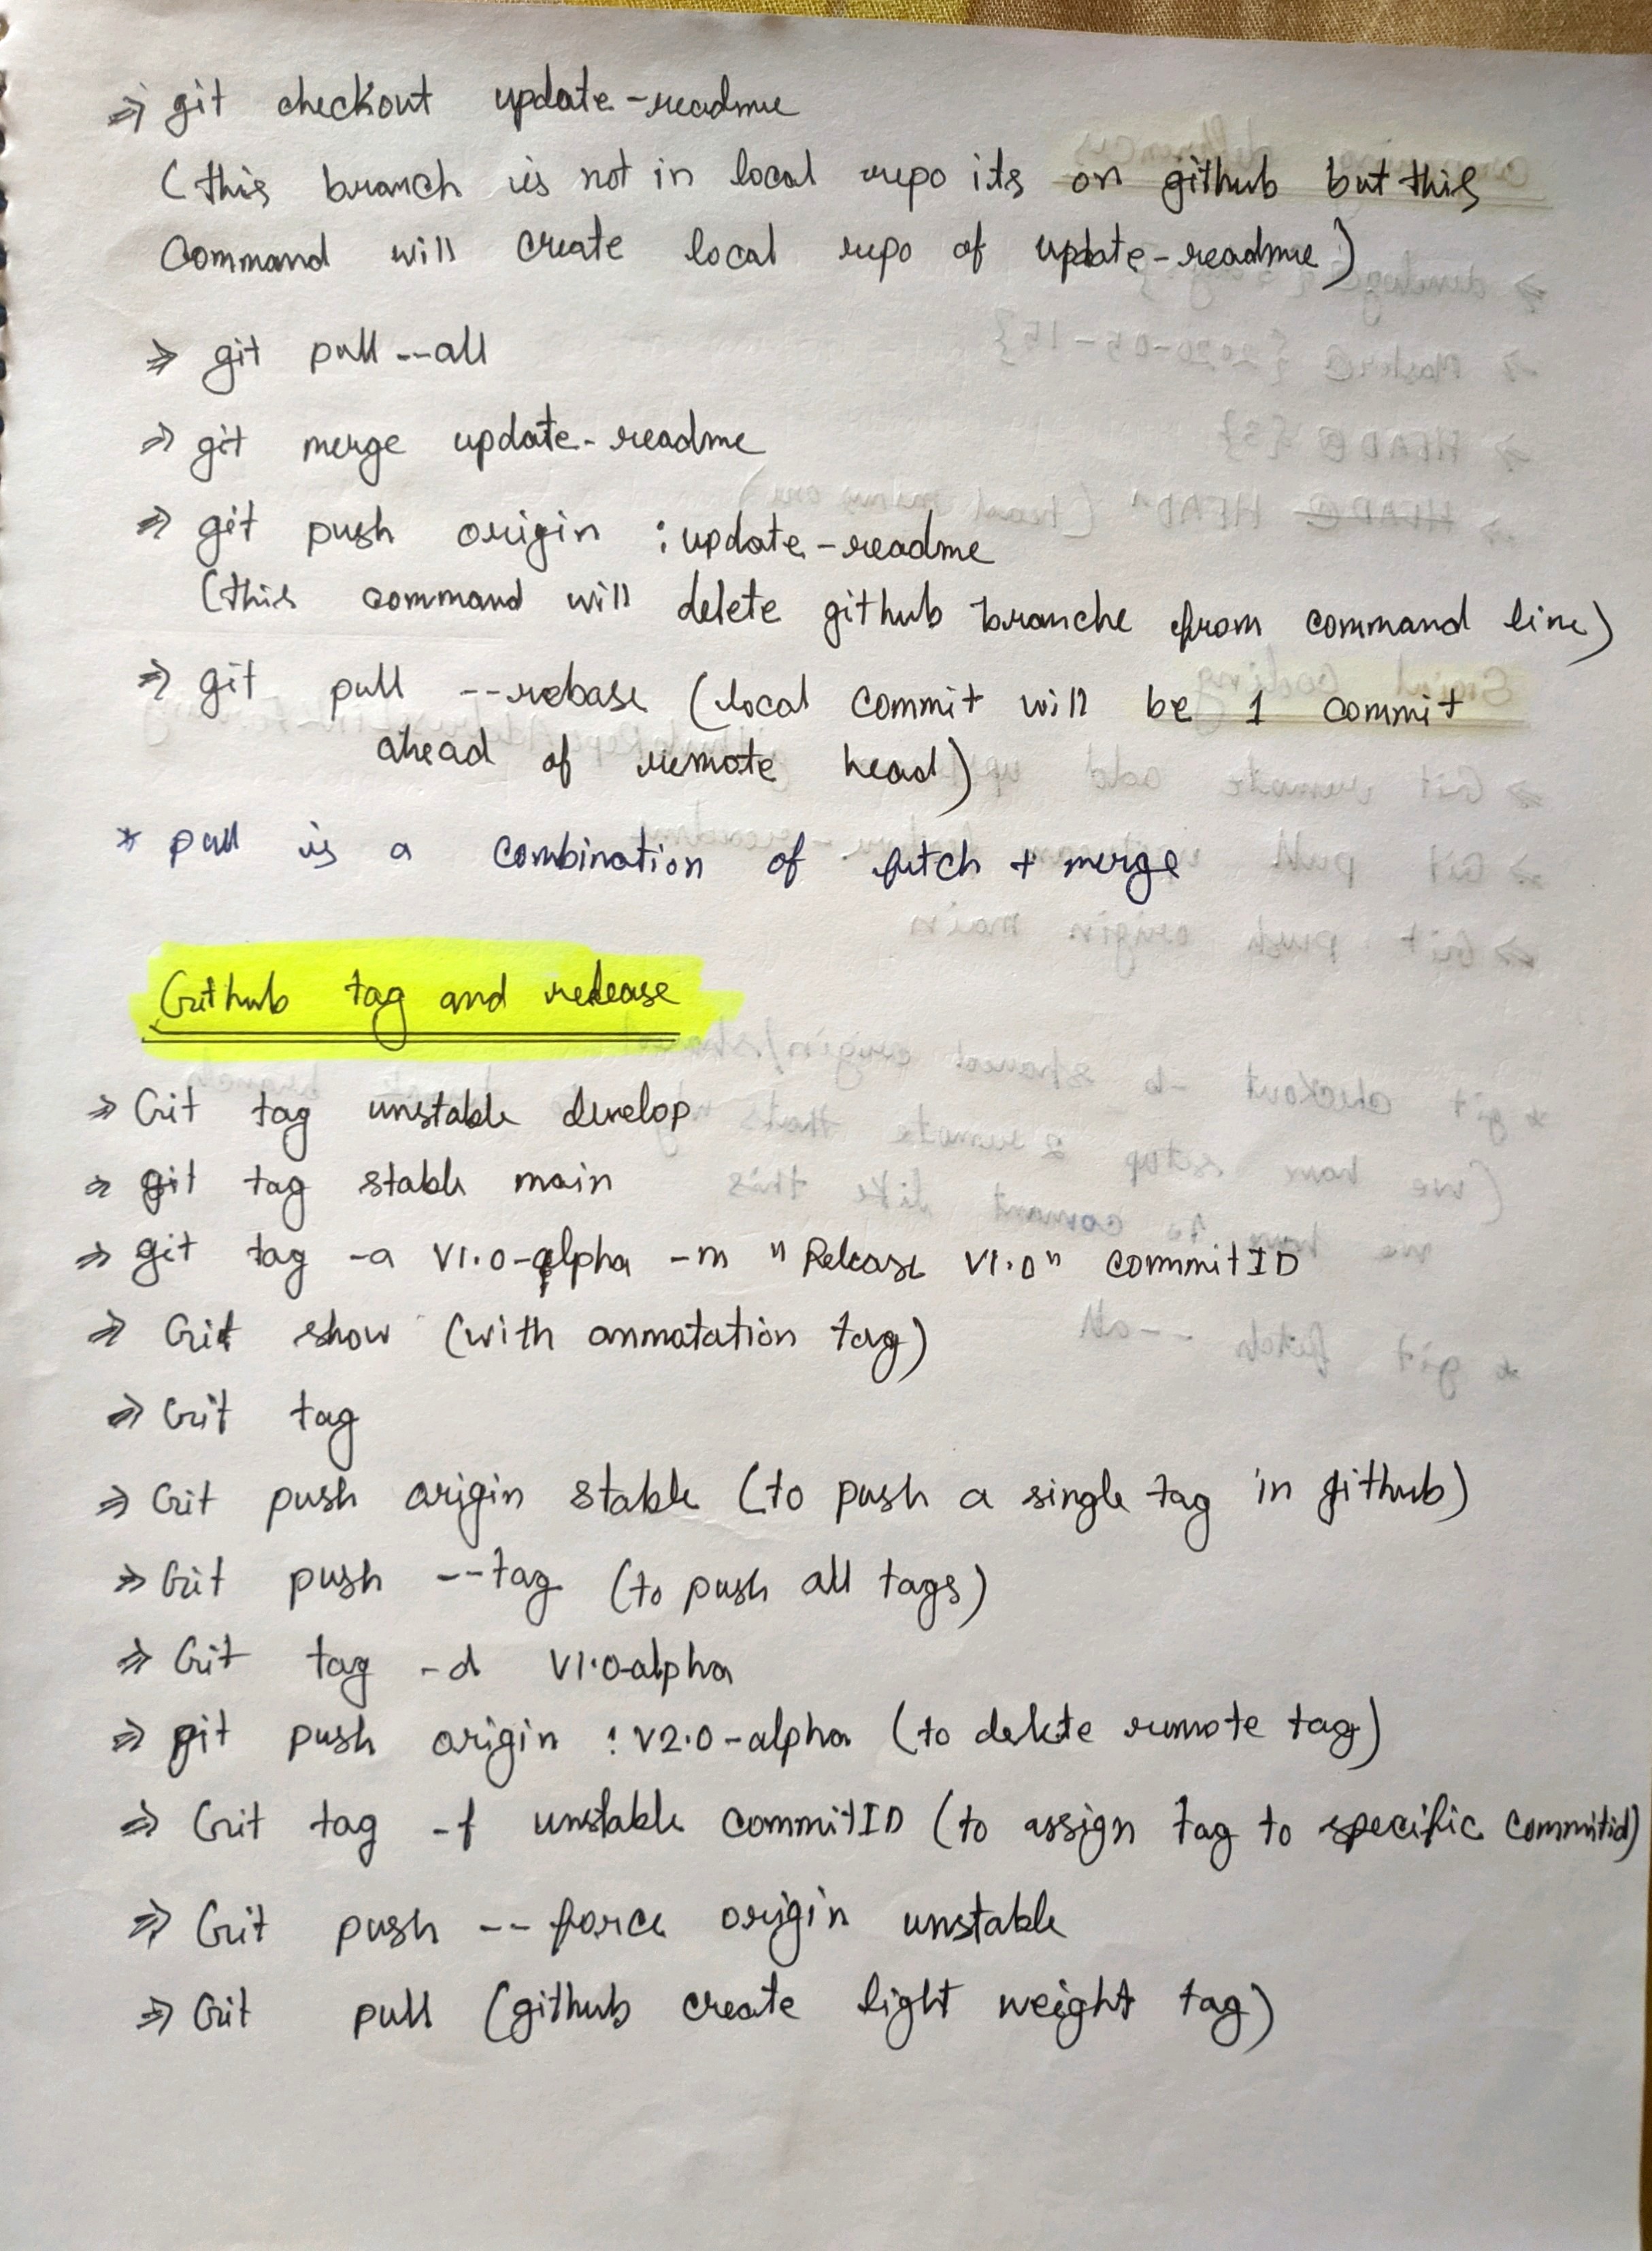 ⇒ git checkout update-readme
(this branch is not in local repo its on github but this
command will create local repo of update-readme)
⇒ git pull --all
⇒ git merge update-readme
⇒ git push origin :update-readme
(this command will delete github branche from command line)
⇒ git pull --rebase (local commit will be 1 commit
ahead of remote head)
* pull is a combination of fetch + merge
Github tag and release
⇒ Git tag unstable develop
⇒ git tag stable main
⇒ git tag -a V1.0-alpha -m "Release V1.0" commitID
⇒ Git show (with annotation tag)
⇒ Git tag
⇒ Git push origin stable (to push a single tag in github)
⇒ Git push --tag (to push all tags)
⇒ Git tag -d V1.0-alpha
⇒ git push origin :V2.0-alpha (to delete remote tag)
⇒ Git tag -f unstable commitID (to assign tag to specific commitid)
⇒ Git push --force origin unstable
⇒ Git pull (github create light weight tag)